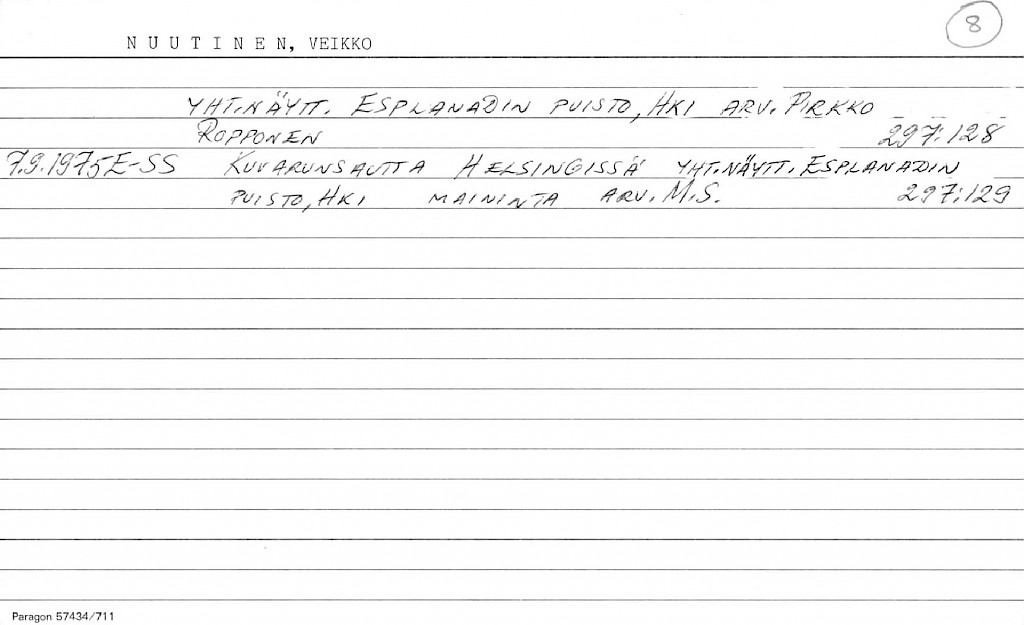 8
N U U T I N E N, VEIKKO
YHT.NÄYTT. ESPLANADIN PUISTO, HKI ARV. PIRKKO
ROPPONEN 297:128
7.9.1975 E-SS KUVARUNSAUTTA HELSINGISSÄ YHT.NÄYTT. ESPLANADIN
PUISTO, HKI MAININTA ARV. M.S. 297:129
Paragon 57434/711